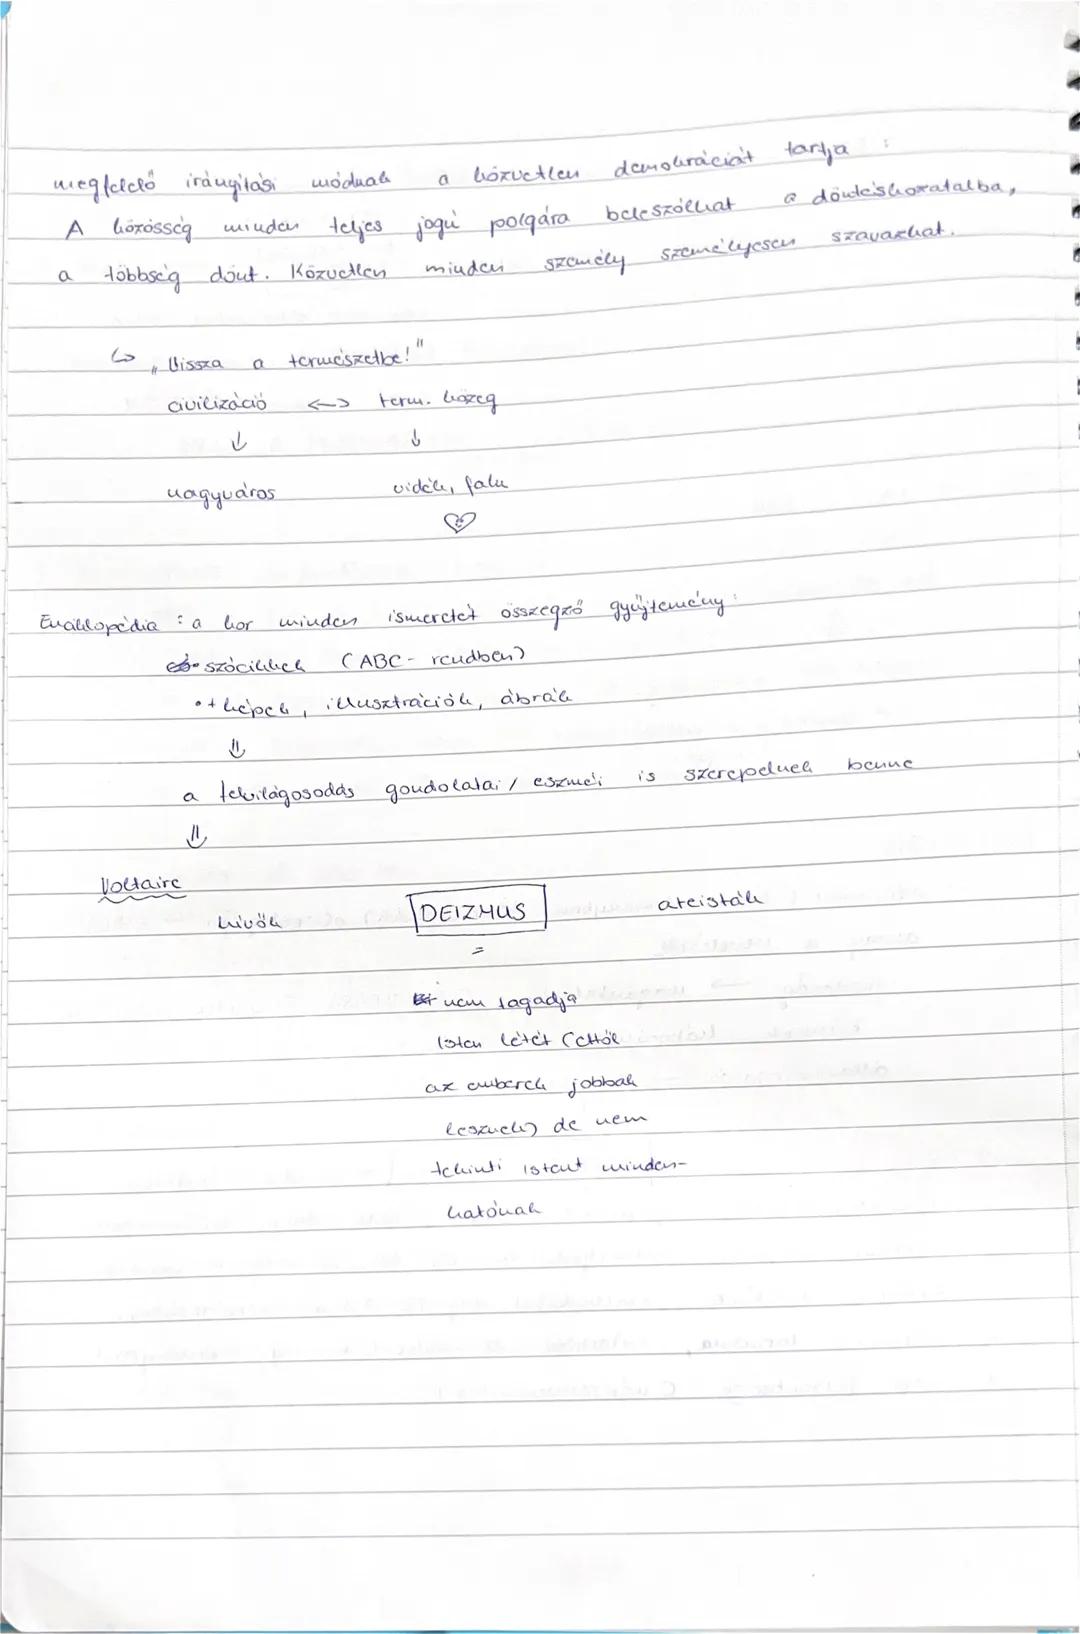 megfelelő irányítási módnak a közvetlen demokráciát tartja :
A közösség minden teljes jogú polgára beleszólhat a döntéshozatalba,
a többség dönt. Közvetlen minden személy személyesen szavazhat.
↳ „Vissza a természetbe!"
civilizáció <-> term. közeg
↓ ↓
nagyváros vidék, falu
♡
Enciklopédia : a kor minden ismeretét összegző gyűjtemény :
• szócikkek (ABC- rendben)
•+ képek, illusztrációk, ábrák
⇓
a felvilágosodás gondolatai / eszméi is szerepelnek benne
⇓
Voltaire
hívők DEIZMUS ateisták
=
nem tagadja
Isten létét (ettől
az emberek jobbak
lesznek) de nem
tekinti istent minden-
hatónak